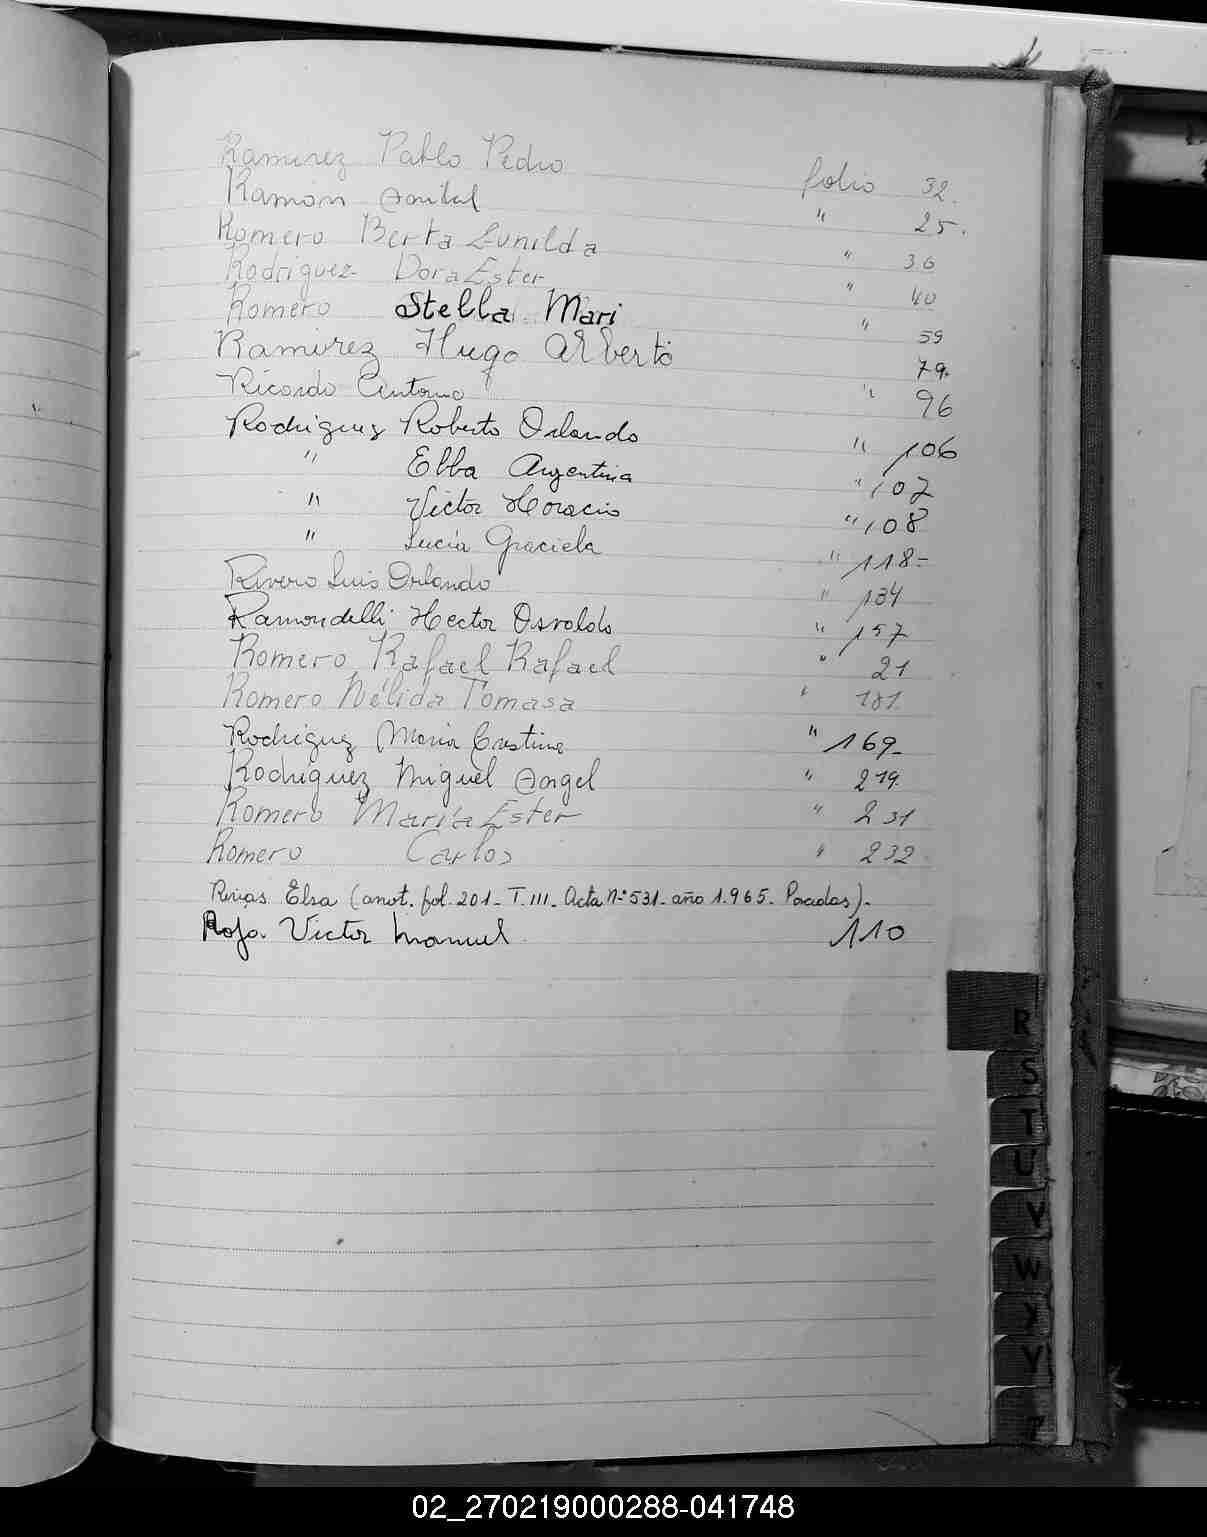 Ramirez Pablo Pedro folio 32.
Ramón Anibal " 25.
Romero Berta Lunilda " 36
Rodriguez Dora Ester " 40
Romero Stella Mari " 59
Ramirez Hugo Alberto 79.
Ricardo Antonio " 96
Rodriguez Roberto Orlando " 106
" Elba Argentina " 107
" Victor Horacio " 108
" Lucía Graciela " 118-
Rivero Luis Orlando " 134
Ramondelli Hector Osvaldo " 157
Romero Rafael Rafael " 21
Romero Nélida Tomasa " 181.
Rodriguez Maria Cristina " 169-
Rodriguez Miguel Angel " 219.
Romero María Ester " 231
Romero Carlos " 232
Elsa (anot. fol. 201- T. III. Acta Nº 531- año 1.965. Posadas).-
Roja Victor Manuel 110
R
S
T
U
V
W
X
Y
Z
02_270219000288-041748